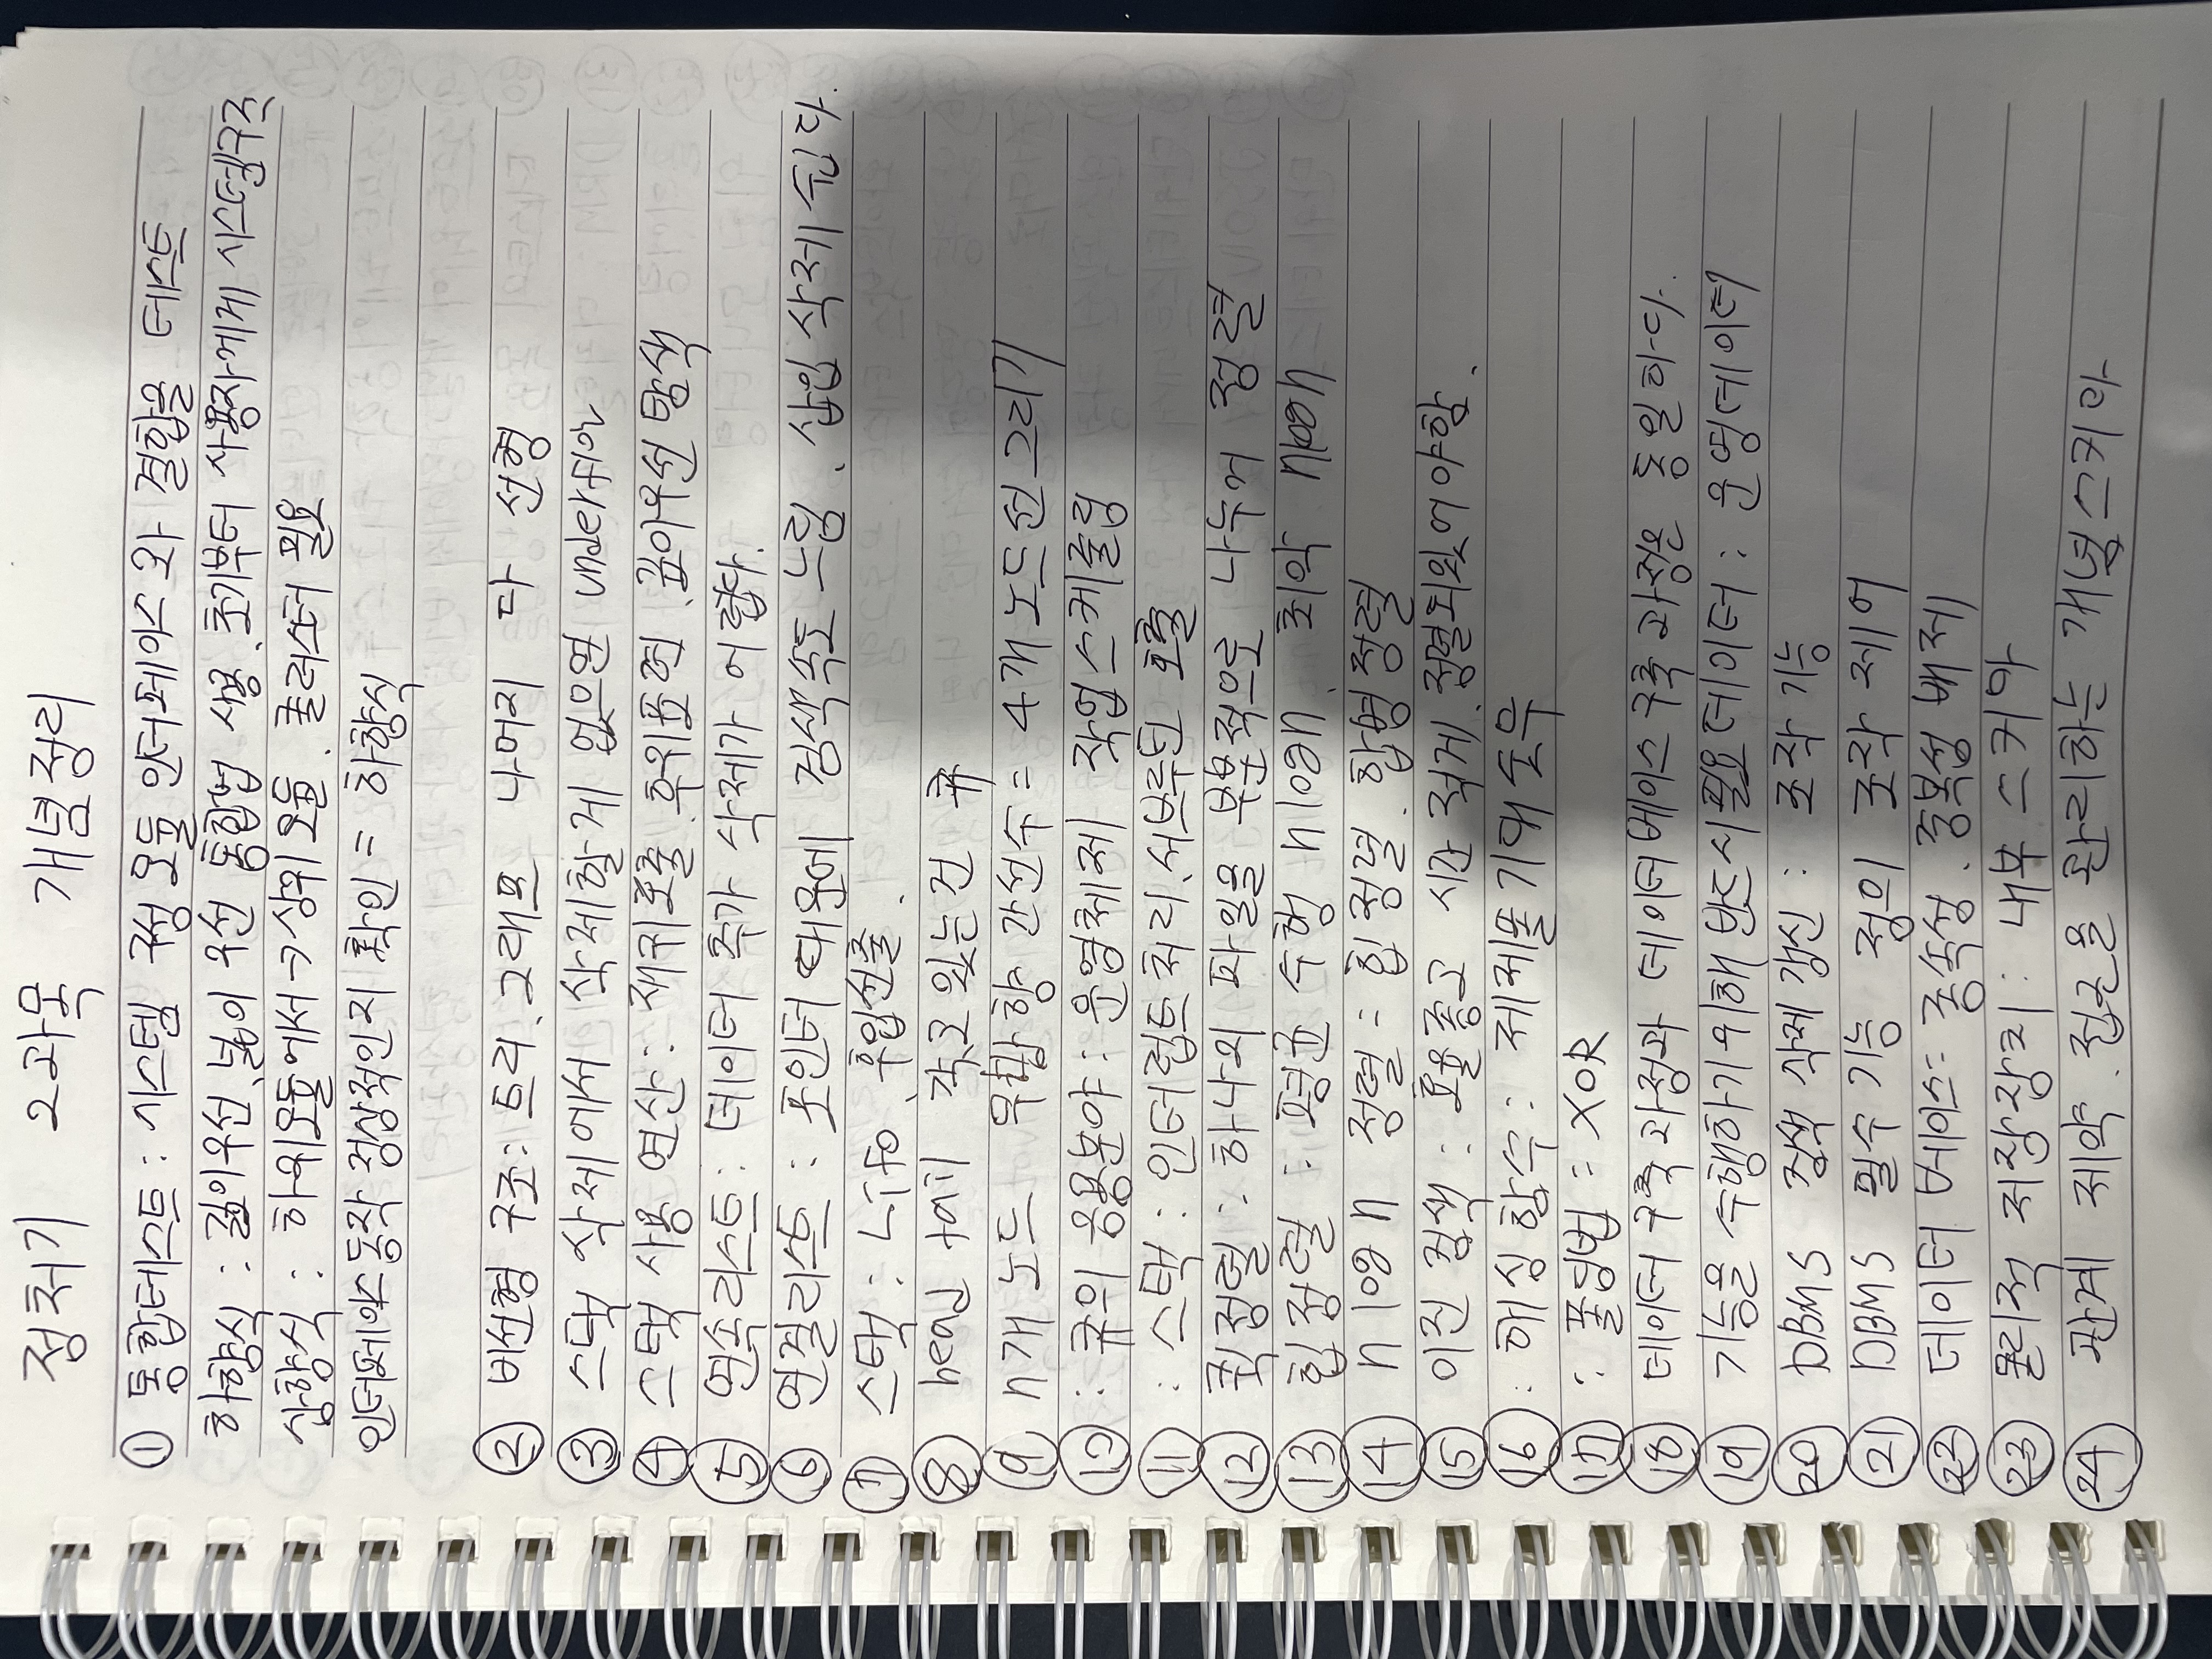 정처기 2과목 개념정리
① 통합테스트 : 시스템 구성 모듈 인터페이스와 결함을 테스트
하향식 : 깊이우선 넓이 우선 통합법 사용. 초기부터 사용자에게 시스템구조
상향식 : 하위모듈에서 → 상위 모듈. 클러스터 필요
인터페이스 동작 정상적인지 확인 = 하향식
② 비선형 구조 : 트리. 그래프 나머지 다 선형
③ 스택 삭제에서 삭제할게 없으면 underflow
④ 스택 사용 연산 : 재귀호출. 후위표현. 깊이우선탐색
⑤ 연속리스트 : 데이터 추가 삭제가 어렵다.
⑥ 연결리스트 : 포인터 때문에 검색속도 느림. 삽입 삭제 쉽다.
⑦ 스택 : Lifo. 후입선출.
⑧ head tail 갖고 있는건 큐
⑨ n개 노드 무방향 간선수 = 4개 노드선 그리기
⑩ : 큐의 응용분야 : 운영체제 작업스케줄링
⑪ : 스택 : 인터럽트처리. 서브루틴 호출
⑫ 퀵정렬 : 하나의 파일을 부분적으로 나누어 정렬
⑬ 힙 정렬 : 평균 수행 nlogn. 최악 nlogn
⑭ n log n 정렬 = 힙정렬. 합병정렬
⑮ 이진 검색 : 효율좋고 시간 적게. 정렬되있어야함.
⑯ : 해싱 함수 : 제제폴기대숫무
⑰ : 폴딩법 : XOR
⑱ 데이터 구축 과정과 데이터베이스 구축 과정은 동일하다.
⑲ 기능을 수행하기 위해 반드시 필요데이터 : 운영데이터
⑳ DBMS 검색 삭제 갱신 : 조작 기능
㉑ DBMS 필수 기능 정의 조작 제어
㉒ 데이터 베이스 : 종속성. 중복성 배제
㉓ 물리적 저장장치 : 내부 스키마
㉔ 관계 제약. 접근을 관리하는 개념스키마